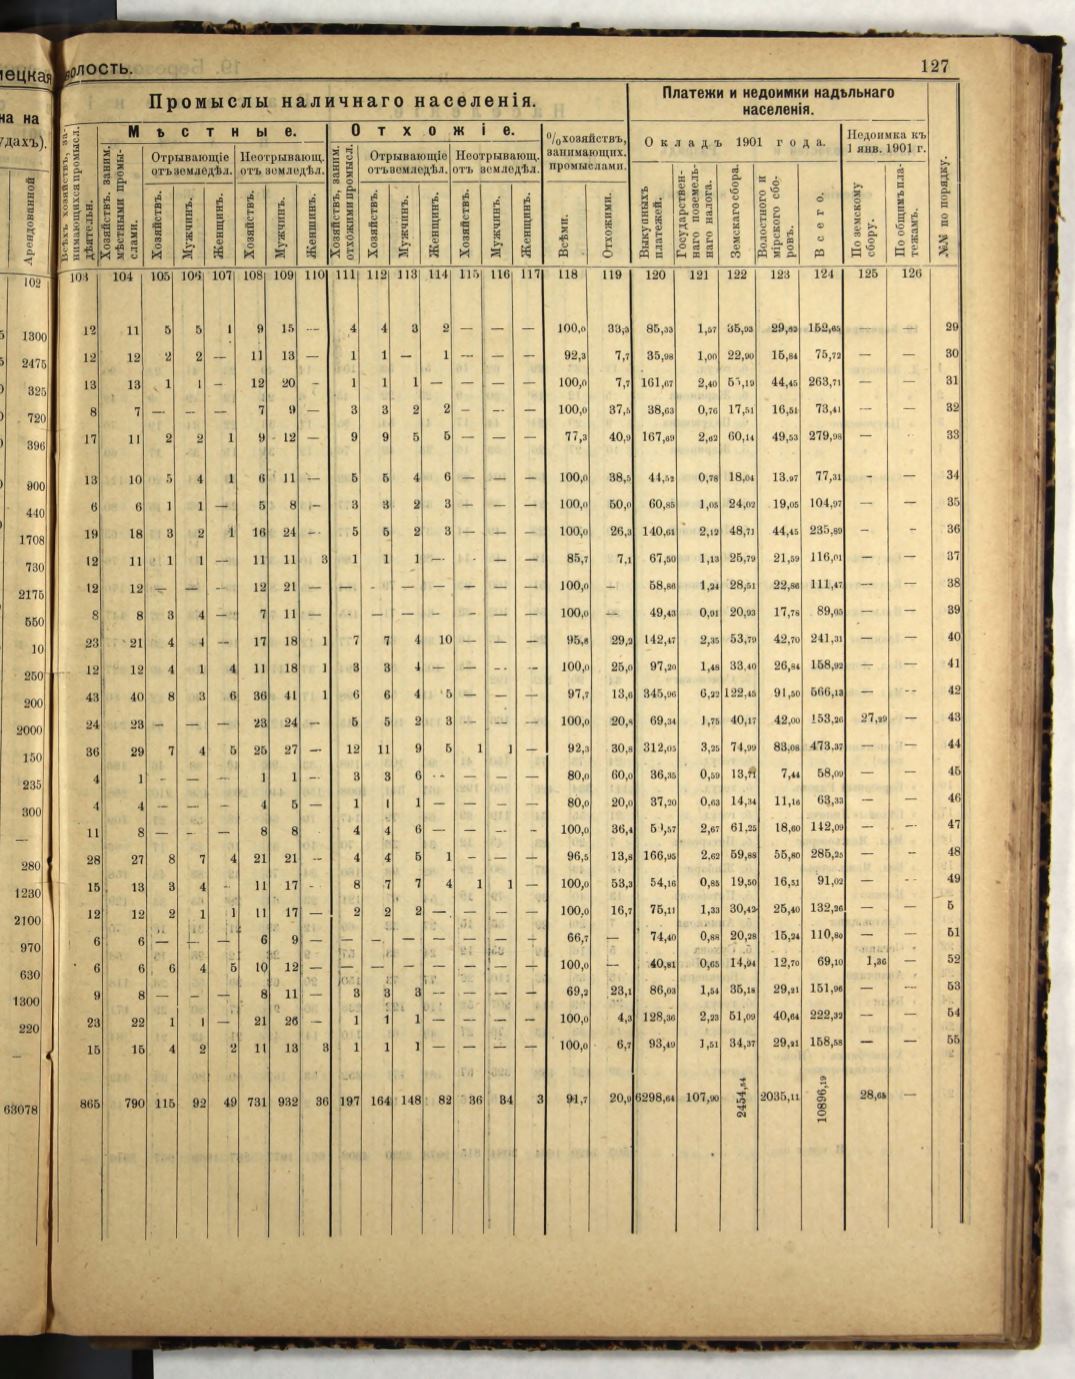 волость. 127
Промыслы наличнаго населенія. Платежи и недоимки надѣльнаго населенія.
Мѣстные. Отхожіе. % хозяйствъ, занимающих. промыслами. Окладъ 1901 года. Недоимка къ 1 янв. 1901 г.
Отрывающіе отъ земледѣл. Неотрывающ. отъ земледѣл. Отрывающіе отъ земледѣл. Неотрывающ. отъ земледѣл.
Арендованной Всѣхъ хозяйствъ, занимающихся промысл. дѣятельн. Хозяйствъ. заним. мѣстными промыслами. Хозяйствъ. Мужчинъ. Женщинъ. Хозяйствъ. Мужчинъ. Женщинъ. Хозяйствъ, заним. отхожими промысл. Хозяйствъ. Мужчинъ. Женщинъ. Хозяйствъ. Мужчинъ. Женщинъ. Всѣми. Отхожими. Выкупныхъ платежей. Государственнаго поземельнаго налога. Земскаго сбора. Волостного и мірского сборовъ. Всего. По земскому сбору. По общимъ платежамъ. №№ по порядку.
102 103 104 105 106 107 108 109 110 111 112 113 114 115 116 117 118 119 120 121 122 123 124 125 126
1300 12 11 5 5 1 9 15 — 4 4 3 2 — — — 100,0 33,3 85,33 1,57 35,93 29,82 152,65 — — 29
2475 12 12 2 2 — 11 13 — 1 1 — 1 — — — 92,3 7,7 35,98 1,00 22,90 15,84 75,72 — — 30
325 13 13 1 1 — 12 20 — 1 1 1 — — — — 100,0 7,7 161,67 2,40 55,19 44,45 263,71 — — 31
720 8 7 — — — 7 9 — 3 3 2 2 — — — 100,0 37,5 38,63 0,76 17,51 16,51 73,41 — — 32
396 17 11 2 2 1 9 12 — 9 9 5 5 — — — 77,3 40,9 167,69 2,62 60,14 49,53 279,98 — — 33
900 13 10 5 4 1 6 11 — 5 5 4 6 — — — 100,0 38,5 44,52 0,78 18,04 13,97 77,31 - — 34
440 6 6 1 1 — 5 8 — 3 3 2 3 — — — 100,0 50,0 60,85 1,05 24,02 19,05 104,97 — — 35
1708 19 18 3 2 1 16 24 — 5 5 2 3 — — — 100,0 26,3 140,61 2,12 48,71 44,45 235,89 — — 36
730 12 11 1 1 — 11 11 3 1 1 1 — — — 85,7 7,1 67,50 1,13 25,79 21,59 116,01 — — 37
2175 12 12 — — — 12 21 — — — — — — — — 100,0 — 58,86 1,24 28,51 22,86 111,47 — — 38
550 8 8 3 4 — 7 11 — — — — — — — — 100,0 — 49,43 0,91 20,93 17,78 89,05 — — 39
10 23 21 4 4 — 17 18 1 7 7 4 10 — — — 95,8 29,2 142,47 2,35 53,79 42,70 241,31 — — 40
250 12 12 4 1 4 11 18 1 3 3 4 — — — — 100,0 25,0 97,20 1,48 33,40 26,84 158,92 — — 41
200 43 40 8 3 6 36 41 1 6 6 4 5 — — — 97,7 13,6 345,96 6,22 122,45 91,50 566,13 — — 42
2000 24 23 — — — 23 24 — 5 5 2 3 — — — 100,0 20,8 69,34 1,75 40,17 42,00 153,26 27,29 — 43
150 36 29 7 4 5 25 27 — 12 11 9 5 1 1 — 92,3 30,8 312,05 3,25 74,99 83,08 473,37 — — 44
235 4 1 — — — 1 1 — 3 3 6 — — — — 80,0 60,0 36,35 0,50 13,71 7,44 58,09 — — 45
300 4 4 — — — 4 5 — 1 1 1 — — — — 80,0 20,0 37,20 0,63 14,34 11,16 63,33 — — 46
— 11 8 — — — 8 8 4 4 6 — — — — 100,0 36,4 2,67 61,25 18,60 142,09 — — 47
280 28 27 8 7 4 21 21 — 4 4 5 1 — — — 96,5 13,8 166,95 2,62 59,88 55,80 285,25 — — 48
1230 15 13 3 4 — 11 17 — 8 7 7 4 1 1 — 100,0 53,3 54,16 0,85 19,50 16,51 91,02 — — 49
2100 12 12 2 1 1 11 17 — 2 2 2 — — — — 100,0 16,7 75,11 1,33 30,42 25,40 132,26 — — 5
970 6 6 — — — 6 9 — — — — — — — — 66,7 — 74,40 0,88 20,28 15,24 110,80 — — 51
630 6 6 6 4 5 10 12 — — — — — — — — 100,0 — 40,81 0,65 14,94 12,70 69,10 1,36 — 52
1300 9 8 — — — 8 11 — 3 3 3 — — — — 69,2 23,1 86,03 1,54 35,18 29,21 151,96 — — 53
220 23 22 1 1 — 21 26 — 1 1 1 — — — — 100,0 4,3 128,36 2,23 51,09 40,64 222,32 — — 54
— 15 15 4 2 2 11 13 3 1 1 1 — — — — 100,0 6,7 93,49 1,51 34,37 29,21 158,58 — — 55
63078 865 790 115 92 49 731 932 36 197 164 148 82 36 34 3 91,7 20,9 6298,64 107,90 2454,54 2035,11 10896,19 28,65 —